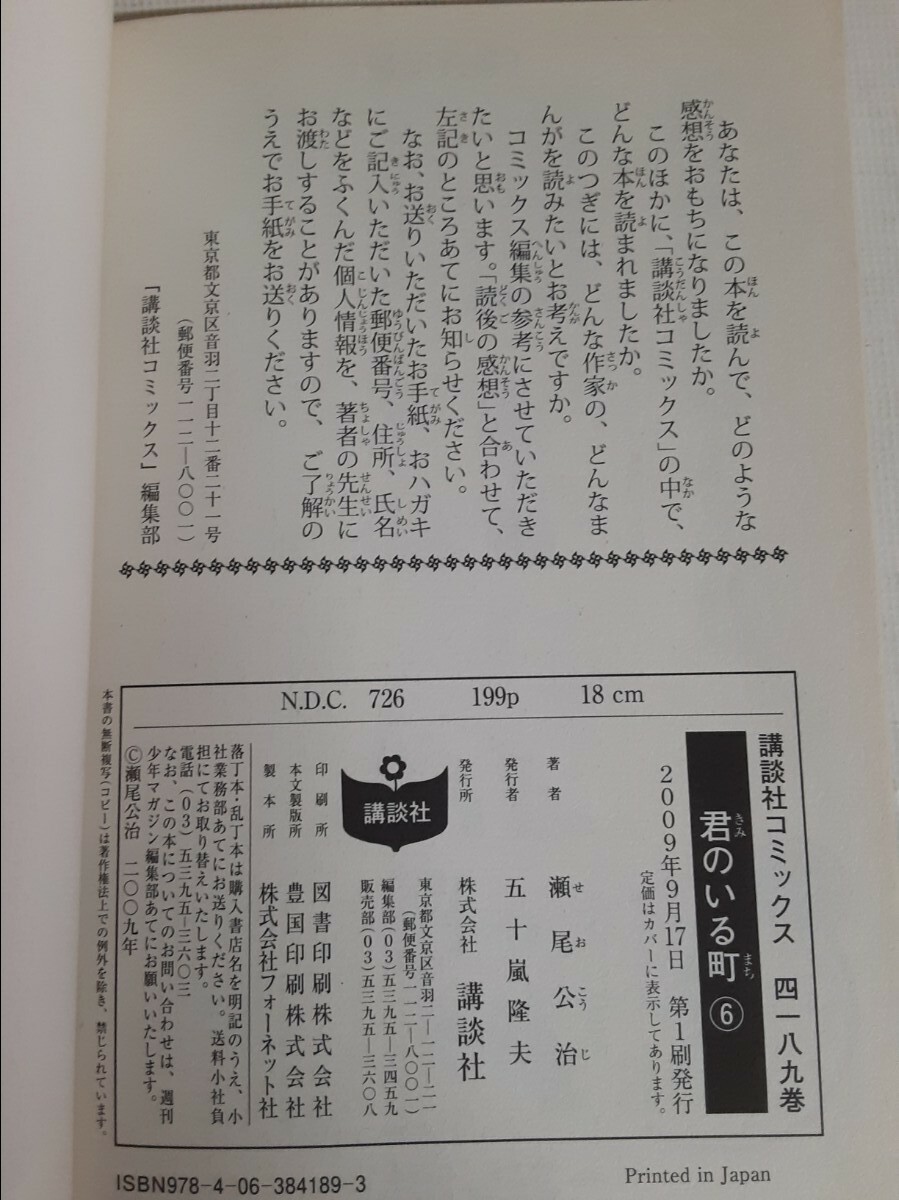 あなたは、この本を読んで、どのような
感想をおもちになりましたか。
このほかに、「講談社コミックス」の中で、
どんな本を読まれましたか。
このつぎには、どんな作家の、どんなま
んがを読みたいとお考えですか。
コミックス編集の参考にさせていただき
たいと思います。「読後の感想」と合わせて、
左記のところあてにお知らせください。
なお、お送りいただいたお手紙、おハガキ
にご記入いただいた郵便番号、住所、氏名
などをふくんだ個人情報を、著者の先生に
お渡しすることがありますので、ご了解の
うえでお手紙をお送りください。
東京都文京区音羽二丁目十二番二十一号
(郵便番号一一二―八〇〇一)
「講談社コミックス」編集部
N.D.C. 726 199p 18 cm
講談社コミックス 四一八九巻
君のいる町⑥
2009年9月17日 第1刷発行
定価はカバーに表示してあります。
著者 瀬尾公治
発行者 五十嵐隆夫
発行所 株式会社 講談社
東京都文京区音羽二―一二―二一
(郵便番号一一二―八〇〇一)
編集部(03)五三九五―三四五九
販売部(03)五三九五―三六〇八
講談社
印刷所 図書印刷株式会社
本文製版所 豊国印刷株式会社
製本所 株式会社フォーネット社
落丁本・乱丁本は購入書店名を明記のうえ、小
社業務部あてにお送りください。送料小社負
担にてお取り替えいたします。
電話(03)五三九五―三六〇三
なお、この本についてのお問い合わせは、週刊
少年マガジン編集部あてにお願いいたします。
©瀬尾公治 二〇〇九年
本書の無断複写(コピー)は著作権法上での例外を除き、禁じられています。
ISBN978-4-06-384189-3
Printed in Japan